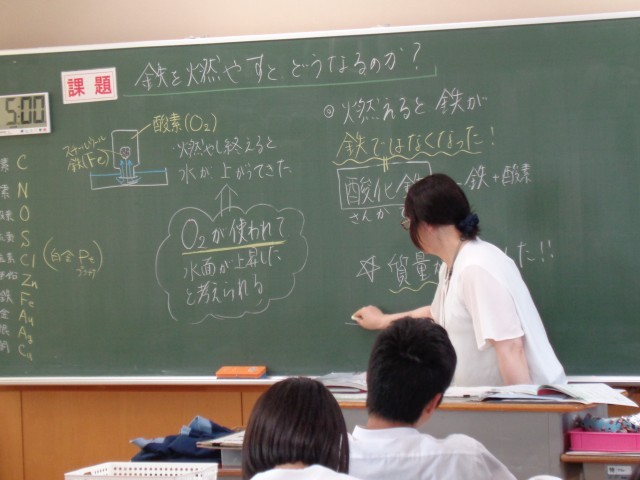 課題
鉄を燃やすとどうなるのか?
5:00
スチールウール
鉄(Fe)
酸素(O₂)
燃やし終えると
水が上がってきた
O₂が使われて
水面が上昇した
と考えられる
◎燃えると鉄が
鉄ではなくなった!
酸化鉄
さんか
鉄+酸素
☆質量
た!!
C
N
O
S
Cl
Zn
Fe
Au
Ag
Cu
(白金 Pt
プラチナ)